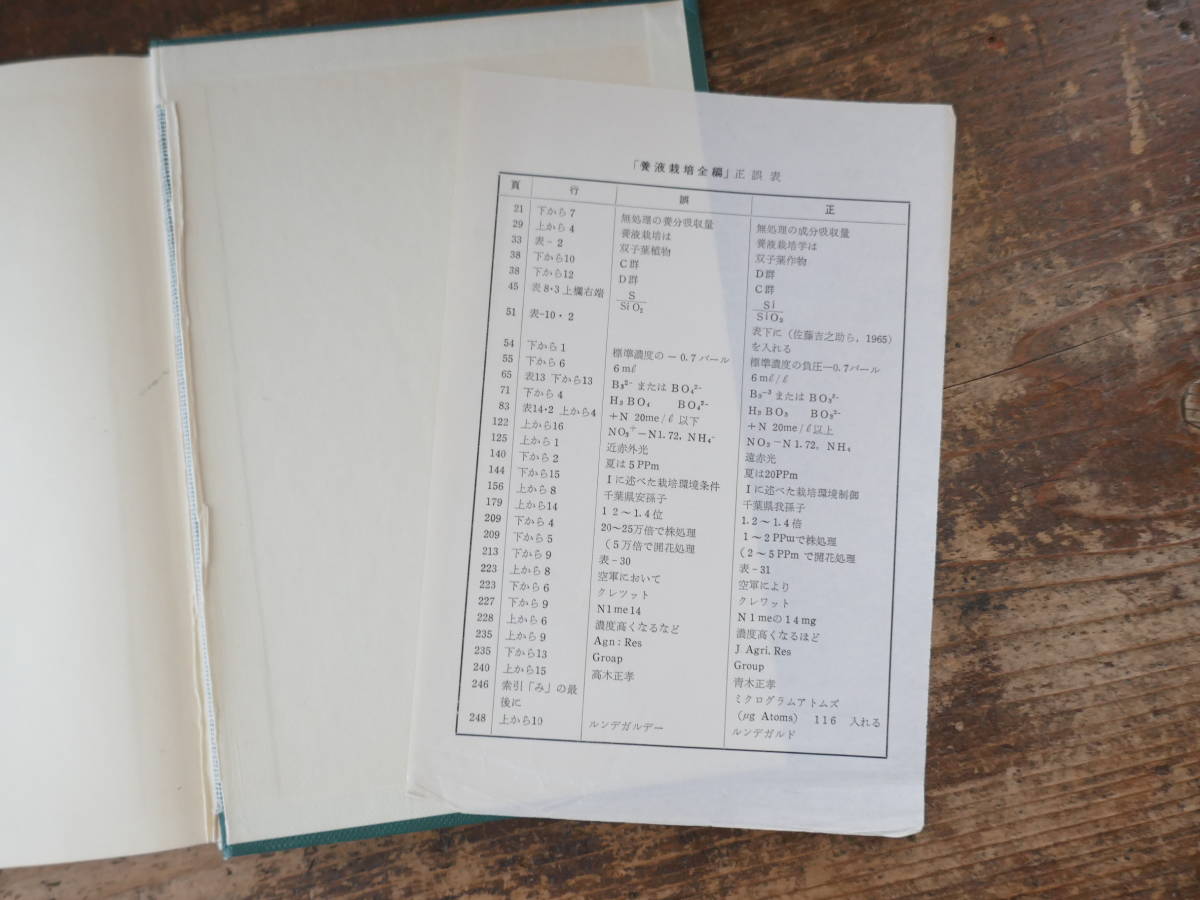 「養液栽培全編」正誤表
頁 行 誤 正
21 下から7 無処理の養分吸収量 無処理の成分吸収量
29 上から4 養液栽培は 養液栽培学は
33 表-2 双子葉植物 双子葉作物
38 下から10 C群 D群
38 下から12 D群 C群
45 表8・3上欄右端 S/SiO₂ Si/SiO₂
51 表-10・2 表下に(佐藤吉之助ら,1965)
を入れる
54 下から1 標準濃度の-0.7バール 標準濃度の負圧-0.7バール
55 下から6 6mℓ 6mℓ/ℓ
65 表13 下から13 B₃²⁻またはBO₄²⁻ B₃⁻³またはBO₃²⁻
71 下から4 H₂BO₄ BO₄²⁻ H₂BO₃ BO₃²⁻
83 表14・2 上から4 +N 20me/ℓ以下 +N 20me/ℓ以上
122 上から16 NO₃⁺-N1.72, NH₄⁻ NO₃-N1.72, NH₄
125 上から1 近赤外光 遠赤光
140 下から2 夏は5PPm 夏は20PPm
144 下から15 Iに述べた栽培環境条件 Iに述べた栽培環境制御
156 上から8 千葉県安孫子 千葉県我孫子
179 上から14 12~1.4位 1.2~1.4倍
209 下から4 20~25万倍で株処理 1~2PPmで株処理
209 下から5 (5万倍で開花処理 (2~5PPmで開花処理
213 下から9 表-30 表-31
223 上から8 空軍において 空軍により
223 下から6 クレツット クレワット
227 下から9 N1me14 N1meの14mg
228 上から6 濃度高くなるなど 濃度高くなるほど
235 上から9 Agn:Res J Agri.Res
235 下から13 Groap Group
240 上から15 高木正孝 青木正孝
246 索引「み」の最 ミクログラムアトムズ
後に (μg Atoms) 116 入れる
248 上から10 ルンデガルデー ルンデガルド